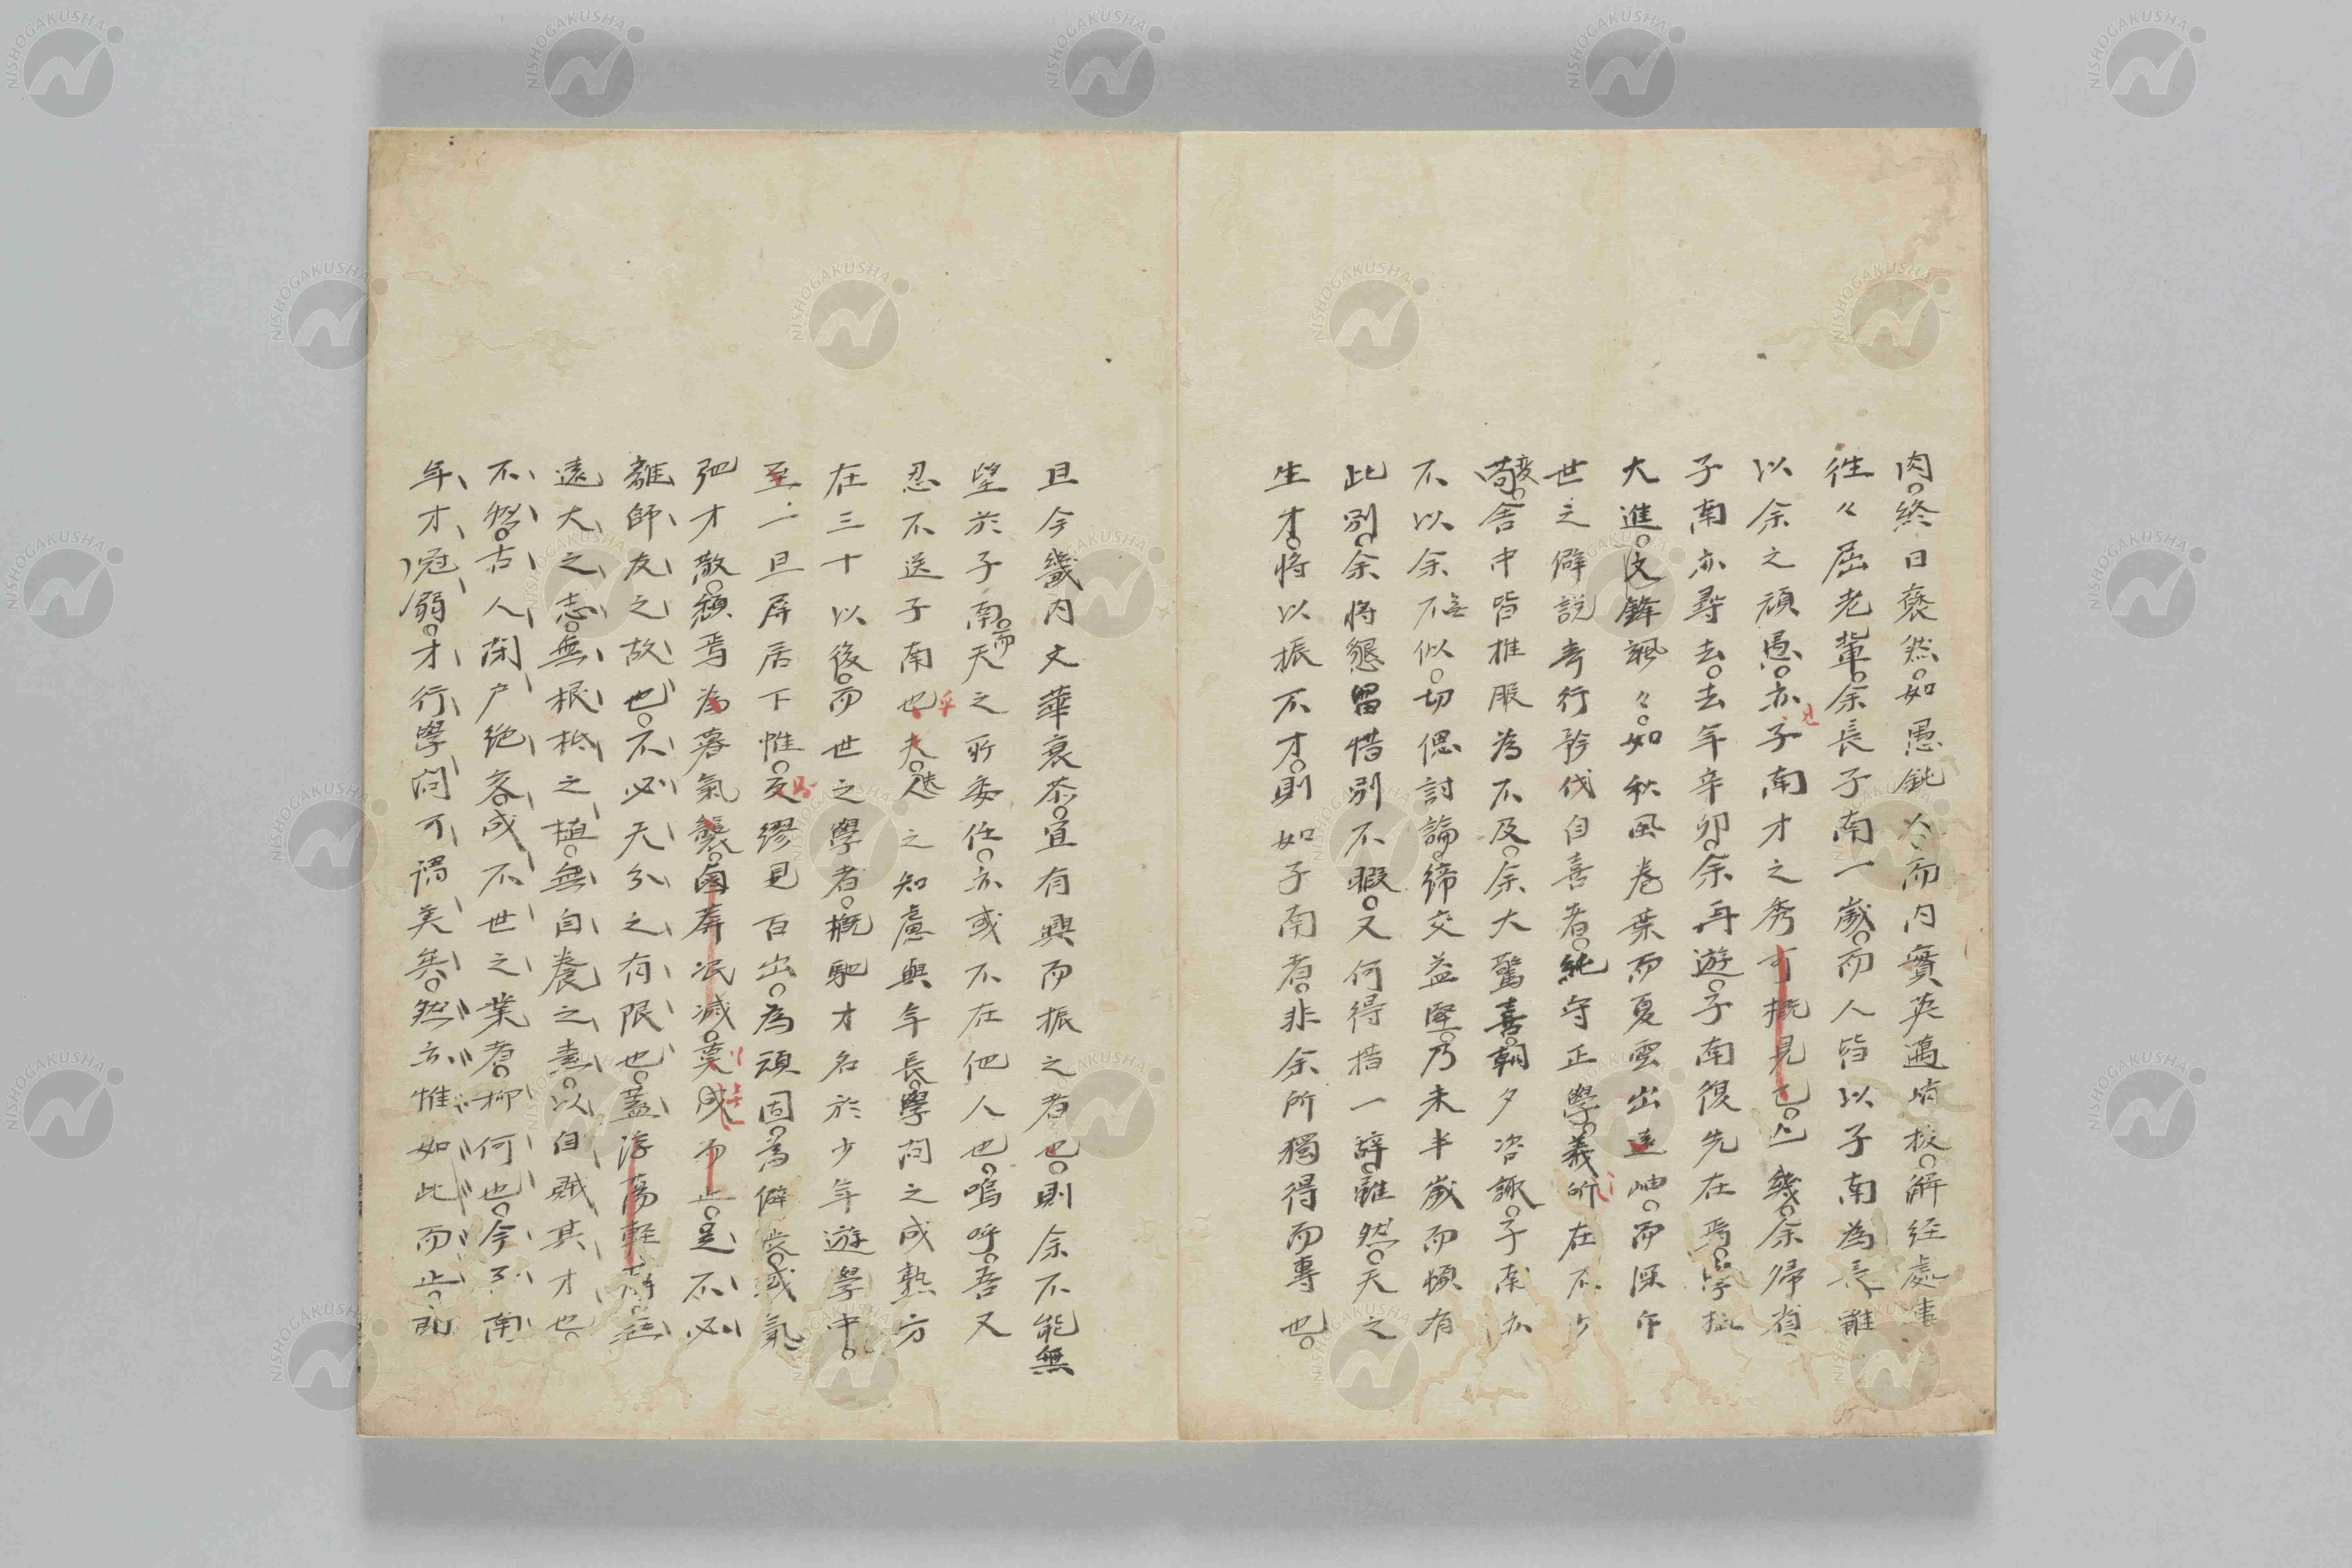 肉終日褎然如愚鈍人而内實英邁峭拔解経處事
往々屈老輩余長子南一歳而人皆以子南為長雖
以余之頑愚亦子南才之秀可概見已亡幾余帰省
子南亦尋去去年辛卯余再遊子南復先在焉學拡
大進文鋒諷々如秋風巻葉而夏雲出遠岫而深斥
世之僻説奇行矜伐自喜者純守正學義所在不少
變舎中皆推服為不及余大驚喜朝夕咨諏子南亦
不以余不似切偲討論締交益堅乃未半歳而傾有
此別余将懇留惜別不暇又何得措一辞雖然天之
生才将以振不才則如子南者非余所獨得而專也
且今畿内文華衰苶宜有興而振之者也則余不能無
望於子南而天之所委任亦或不在他人也嗚呼吾又
忍不送子南也乎夫人之知慮與年長學問之成熟方
在三十以後而世之學者概馳才名於少年遊學中
至一旦屏居下帷交繆見百出為頑固為僻戾或氣
弛才散頽焉為暮氣襲 泯滅莫成而止是不必
離師友之故也不必天分之有限也蓋浮
遠大之志無根柢之植無自養之素以自賊其才也
不然古人閉户絶客成不世之業者抑何也今子南
年才冠弱才行學問可謂美矣然 惟如此而止即
NISHOGAKUSHA